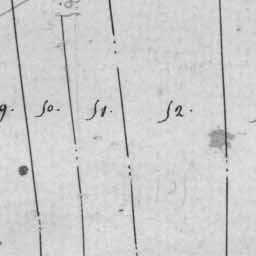 9. 50. 51. 52.